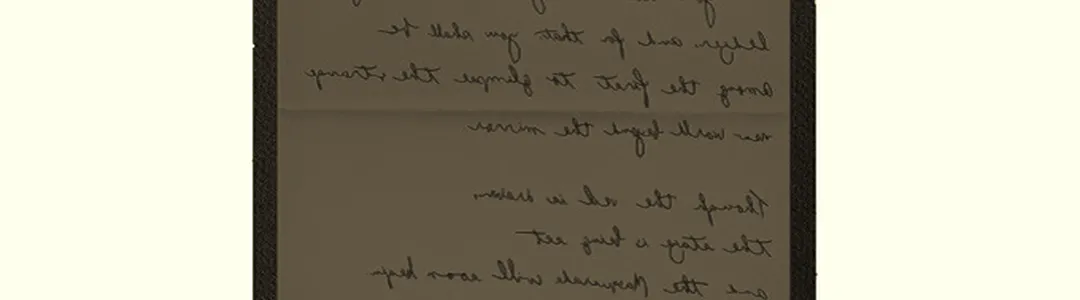 ledger and for that you shall be
among the first to glimpse the strange
new world beyond the mirror
Though the veil is drawn,
the stage is being set
and the Masquerade will soon begin